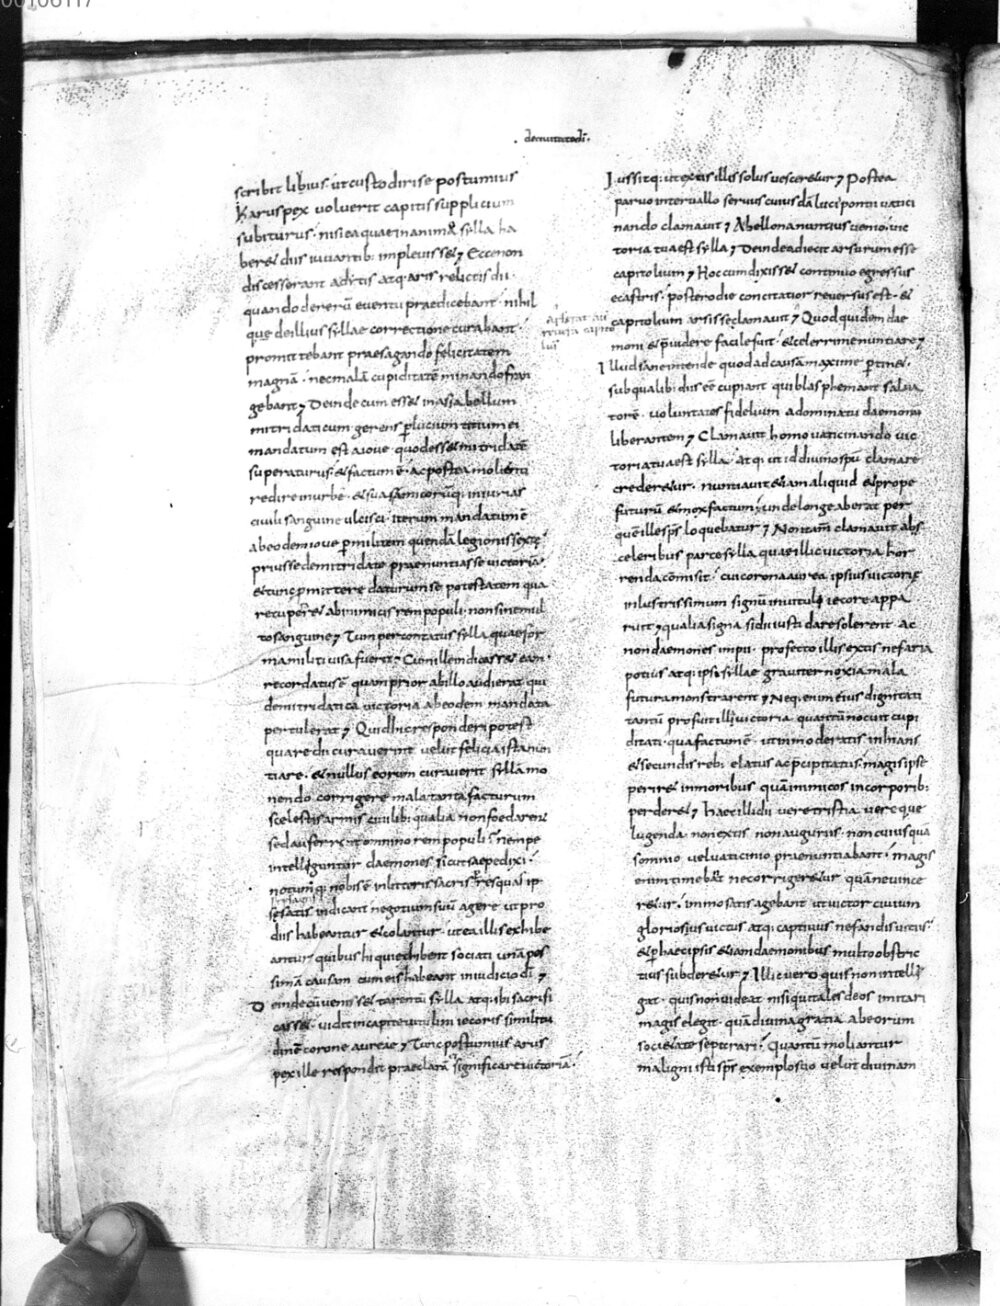 00106117
· deciuitatedī ·
scribit libius · ut custodiri se postumius
haruspex voluerit capitis supplicium
subiturus · nisi ea quae in animo sylla ha
beret diis iuvantib; implevisset; Ecce non
discesserant aditis atq; aris relictis dii ·
quando de rerū eventu praedicebant · nihil
que de illius syllae correctione curabant ·
promittebant praesagando felicitatem
magnā · nec malā cupiditatē minando fran
gebant; Deinde cum esset in asia bellum
mitridaticum gerens p lucium titium ei
mandatum est a iove · quod esset mitridatē
superaturus · et factum ē · ac postea molienti
redire in urbē · et suas amicorūq; iniurias
civili sanguine ulcisci · iterum mandatum ē
ab eodem iove p militem quendā legionis sextę
prius se de mitridate praenuntiasse victoriā ·
et tunc pmittere daturum se potestatem qua
recuperet ab inimicis rem populi · non sine mul
to sanguine; Tum percontatus sylla quae for
ma militi visa fuerit · Cum ille indicasset eam
recordatus ē quam prior ab illo audierat qui
de mitridatica victoria ab eodem mandata
pertulerat; Quid hic responderi potest
quare dii curaverint velut felicia ista nun
tiare · et nullus eorum curaverit syllā mo
nendo corrigere mala tanta facturum
scelestis armis civilib; qualia non foedarent
sed auferrent omnino rem populi · nempe
intelleguntur daemones sicut saepe dixi ·
notum q; nobis ē in litteris sacris resq; ual ip
se satis indicant negotium suū agere ut pro
diis habeantur et colantur · ut ea illis exhibe
antur quibus hi qui exhibent sociati unā pes
simā causam cum eis habeant in iudicio dī;
Deinde cū venisset tarentū sylla atq; ibi sacrifi
casset · vidit in capite vitulini iecoris similitu
dinē corone aureae; Tunc postumius arus
pex ille respondit praeclarā significare victoriā ·
Iussitq; ut extis illis solus vesceretur; Postea
parvo intervallo servus cuiusdā luci pontii vatici
nando clamavit; A bellona nuntius venio · vic
toria tua est sylla; Deinde adiecit arsurum esse
capitolium; Hoc cum dixisset continuo egressus
e castris · postero die concitatior reversus est · et
capitolium arsisse clamavit; Quod quidem dae
moni et pvidere facile fuit · et celerrime nuntiare;
Illud sane intende quod ad causam maxime ptinet ·
sub qualib; diis eē cupiant qui blasphemant salva
torē · voluntates fidelium a dominatu daemonū
liberantem; Clamavit homo vaticinando vic
toria tua est sylla · atq; ut id divino spū clamare
crederetur · nuntiavit etiam aliquid et prope
futurū et mox factum · unde longe aberat per
quē ille sps loquebatur; Non tam clamavit abs
celeribus parce sylla quae illic victor tā hor
renda comisit · cui corona aurea ipsius victorię
inlustrissimum signū in vitulino iecore appa
ruit; qualia signa si dii iusti dare solerent · ac
non daemones impii · profecto illis extis nefaria
potius atq; ipsi syllae graviter noxia mala
futura monstrarent; Neq; enim eius dignitati
tantū profuit illa victoria quantū nocuit cupi
ditati · qua factum ē · ut inmoderatis inhians
et secundis reb; elatus ac pcipitatus · magis ipse
periret in moribus quā inimicos in corporib;
perderet; Haec illi dii vere tristia vereque
lugenda · non extis non auguriis · non cuiusqua
somnio vel vaticinio praenuntiabant · magis
enim timebāt ne corrigeretur quā ne vince
retur · Immo satis agebant ut victor civium
gloriosius victus atq; captivus nefandis vitiis ·
et p haec ipsis etiam daemonibus multo obstric
tius subderetur; Illic vero quis non intelli
gat · quis non videat nisi qui tales deos imitari
magis elegit · quā divina gratia ab eorum
societate separari · Quantū moliantur
maligni isti sps exemplo suo velut divinam